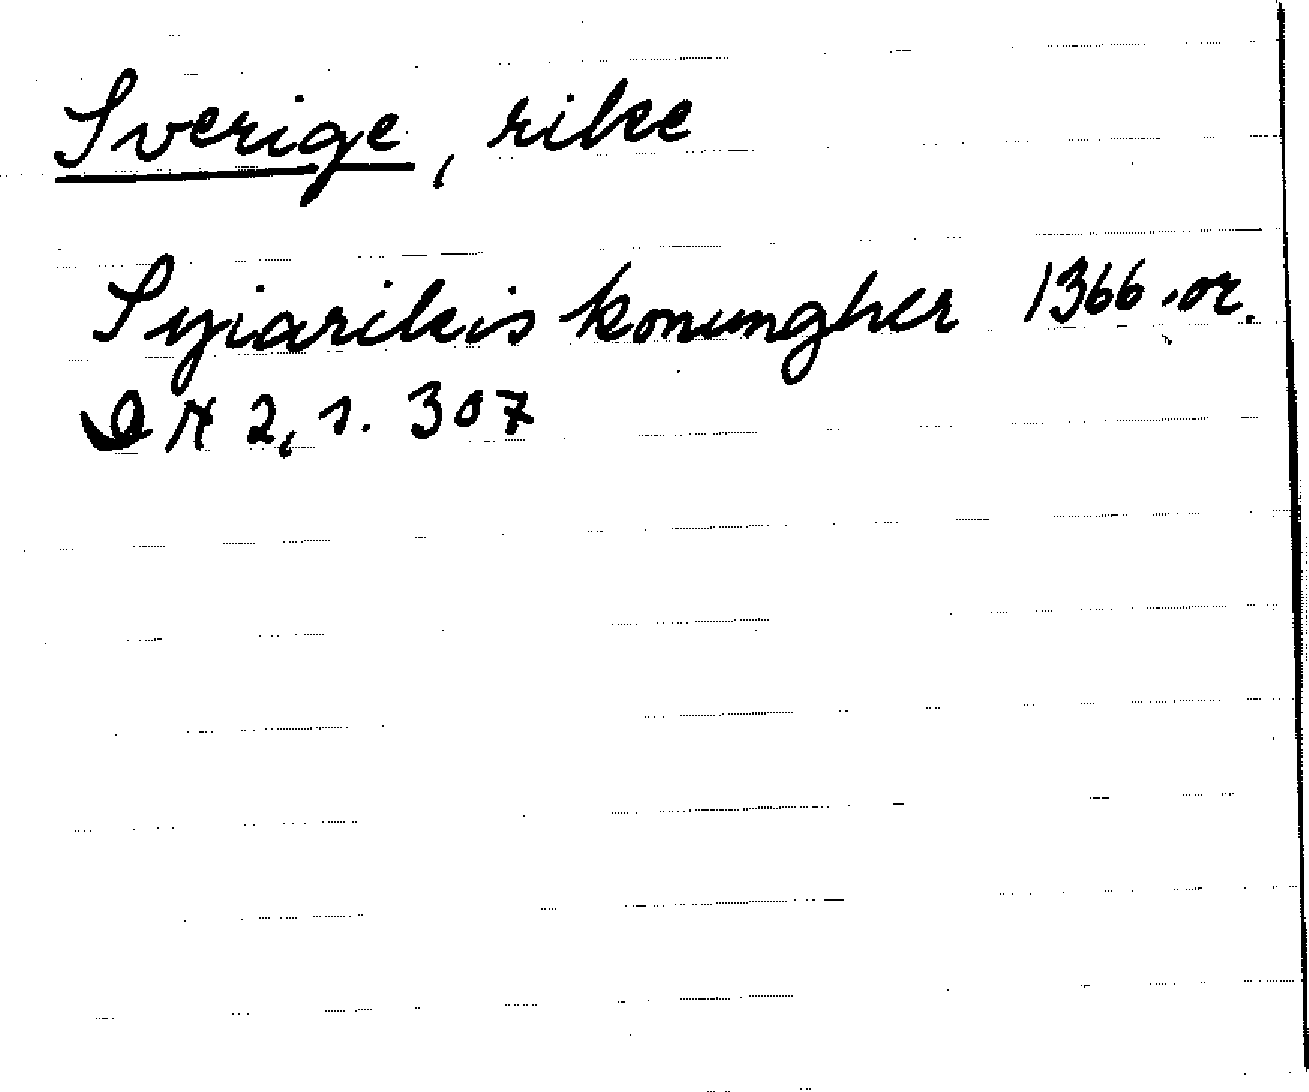 Sverige, rike
Syiarikis konungher 1366 .or.
DN 2, s. 307